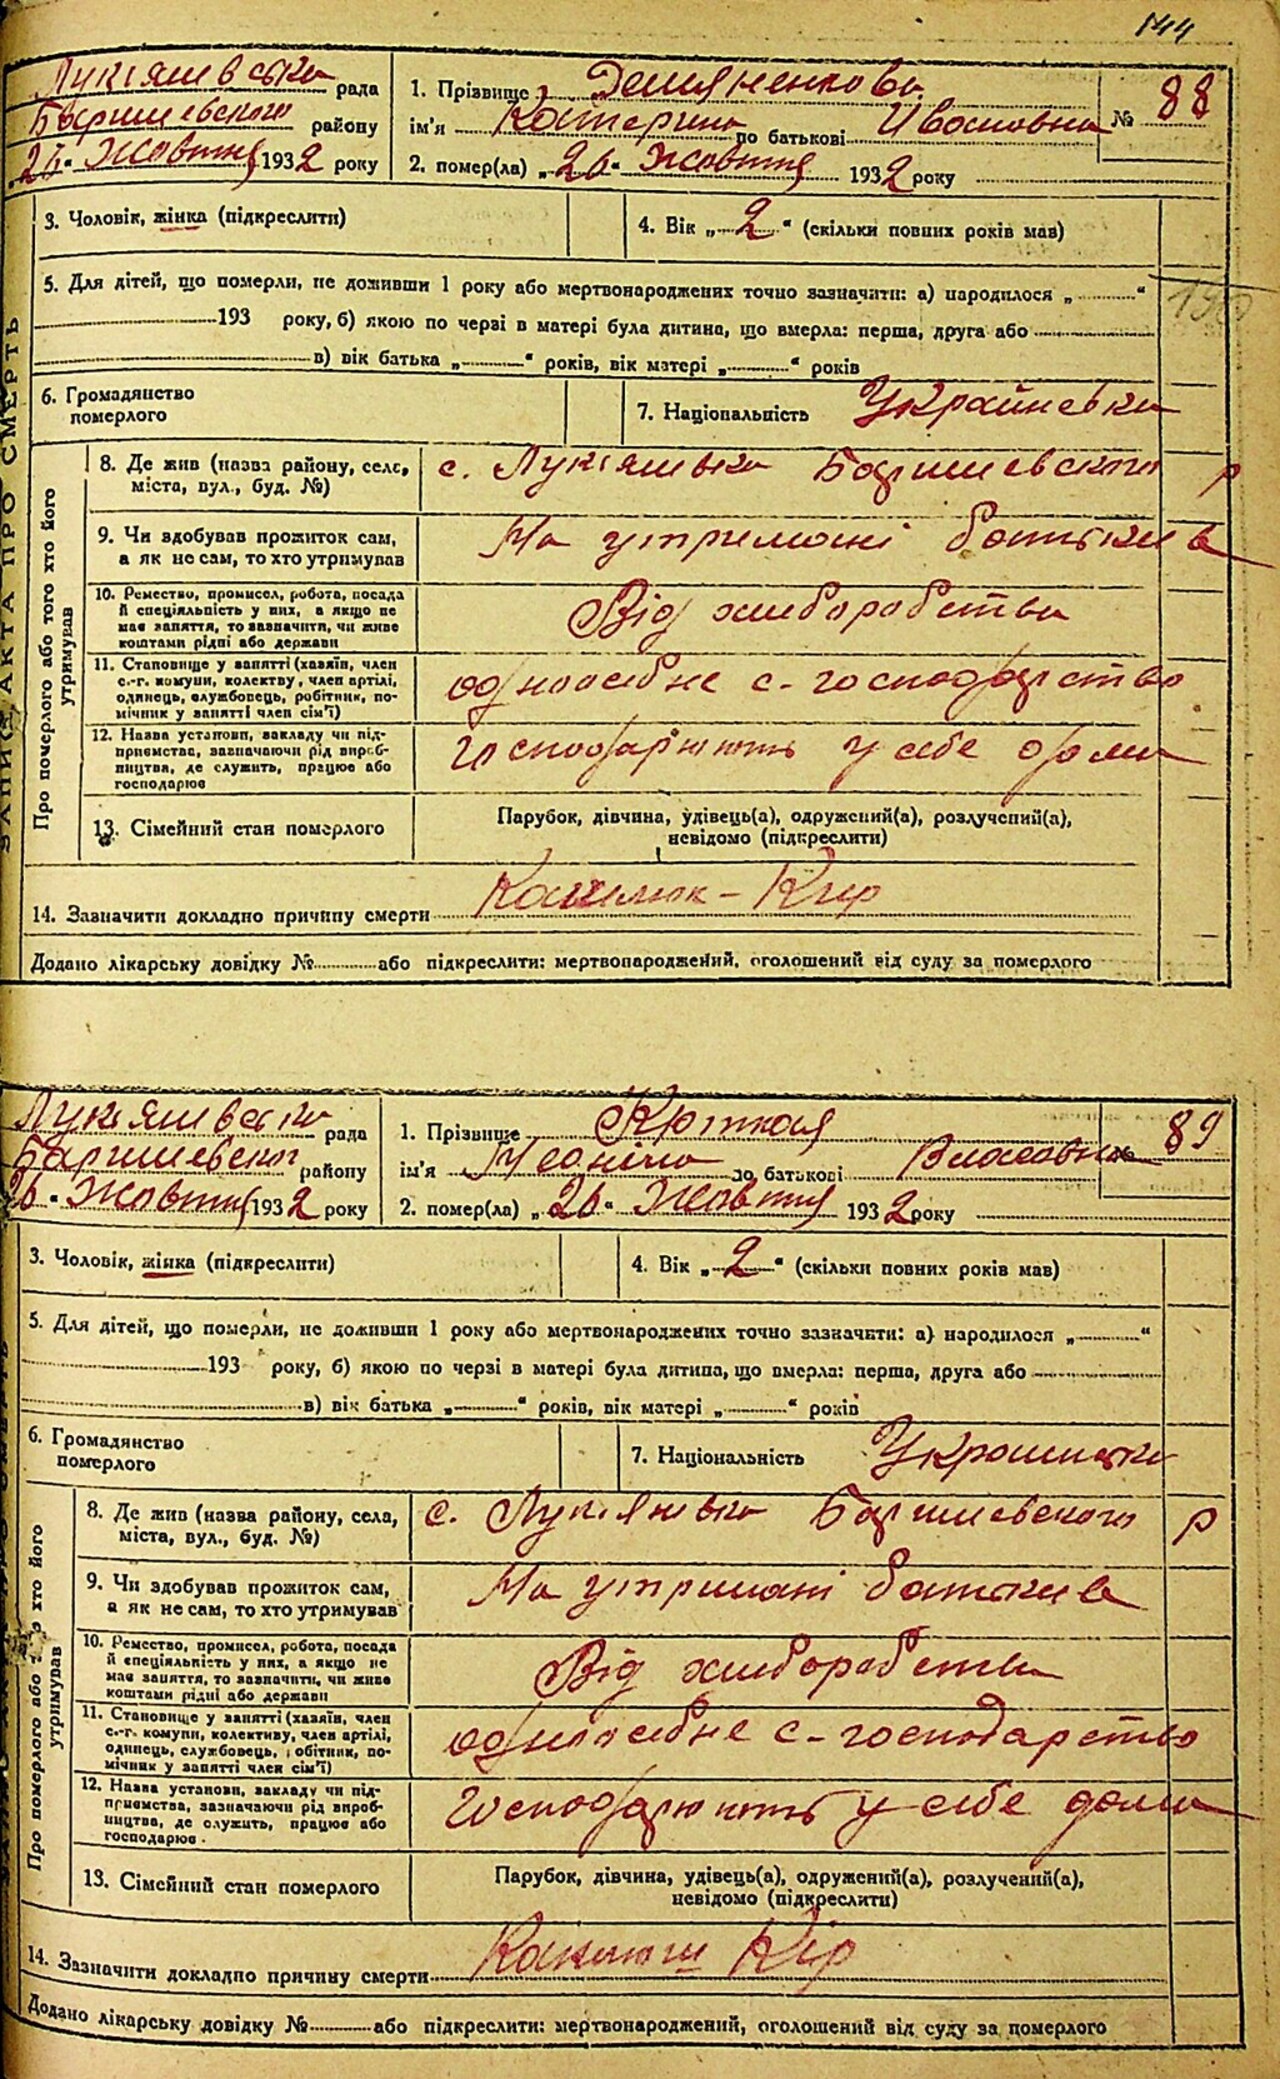 144
Лукіянівська рада
Баришевського району
„26" Жовтня 1932 року
1. Прізвище Демяненкова № 88
ім'я Катерина по батькові Ивановна
2. помер(ла) „26" Жовтня 1932 року
3. Чоловік, жінка (підкреслити)
4. Вік „2" (скільки повних років мав)
5. Для дітей, що померли, не доживши 1 року або мертвонароджених точно зазначити: а) народилося „ "
193 року, б) якою по черзі в матері була дитина, що вмерла: перша, друга або
в) вік батька „ " років, вік матері „ " років
6. Громадянство
померлого
7. Національність Українська
ЗАПИС АКТА ПРО СМЕРТЬ
Про померлого або того хто його
утримував
8. Де жив (назва району, села,
міста, вул., буд. №)
с. Лукіянівка Баришевського р
9. Чи здобував прожиток сам,
а як не сам, то хто утримував
На утримані батьків
10. Ремество, промисел, робота, посада
й спеціяльність у них, а якщо не
має заняття, то зазначити, чи живе
коштами рідні або держави
Від хліборобства
11. Становище у занятті (хазяїн, член
с.-г. комуни, колективу, член артілі,
одинець, службовець, робітник, по-
мічник у занятті член сім'ї)
одноосібне с-господарство
12. Назва установи, закладу чи під-
приємства, зазначаючи рід вироб-
ництва, де служить, працює або
господарює
господарюють у себе дома
13. Сімейний стан померлого
Парубок, дівчина, удівець(а), одружений(а), розлучений(а),
невідомо (підкреслити)
14. Зазначити докладно причину смерти Кашлюк - Кир
Додано лікарську довідку № або підкреслити: мертвонароджений, оголошений від суду за померлого
Лукіянівська рада
Баришевського району
26" Жовтня 1932 року
1. Прізвище 89
ім'я по батькові Власовна
2. помер(ла) „26" Жовтня 1932 року
3. Чоловік, жінка (підкреслити)
4. Вік „2" (скільки повних років мав)
5. Для дітей, що померли, не доживши 1 року або мертвонароджених точно зазначити: а) народилося „ "
193 року, б) якою по черзі в матері була дитина, що вмерла: перша, друга або
в) вік батька „ " років, вік матері „ " років
6. Громадянство
померлого
7. Національність Українка
Про померлого або того хто його
утримував
8. Де жив (назва району, села,
міста, вул., буд. №)
с. Лукіянівка Баришевського р
9. Чи здобував прожиток сам,
а як не сам, то хто утримував
На утримані батьків
10. Ремество, промисел, робота, посада
й спеціяльність у них, а якщо не
має заняття, то зазначити, чи живе
коштами рідні або держави
Від хліборобства
11. Становище у занятті (хазяїн, член
с.-г. комуни, колективу, член артілі,
одинець, службовець, робітник, по-
мічник у занятті член сім'ї)
одноосібне с-господарство
12. Назва установи, закладу чи під-
приємства, зазначаючи рід вироб-
ництва, де служить, працює або
господарює
господарюють у себе дома
13. Сімейний стан померлого
Парубок, дівчина, удівець(а), одружений(а), розлучений(а),
невідомо (підкреслити)
14. Зазначити докладно причину смерти Кір
Додано лікарську довідку № або підкреслити: мертвонароджений, оголошений від суду за померлого